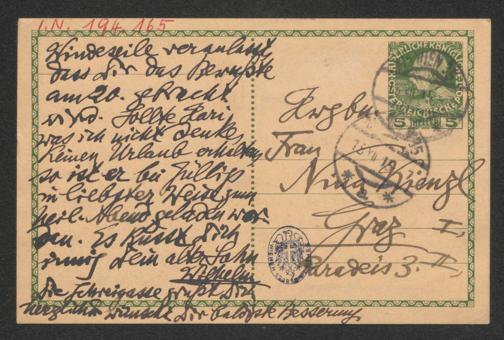 I.N. 194.165
Windeseile veranlasst
dass Dir das Bewußte
am 20. gebracht
wird. Sollte Kari
was ich nicht denke
keinen Urlaub erhalten
so ist er bei
in liebster Weise zum
heil. Abend geladen wor
den. Es küsst Dich
innig Dein alter Sohn
Wilhelm
Die Schreigasse grüßt Dich
herzlich wünscht Dir baldigste Besserung
WIEN
5 5
Frau
Nina Kienzl
Graz I.
Paradeis 3. II.